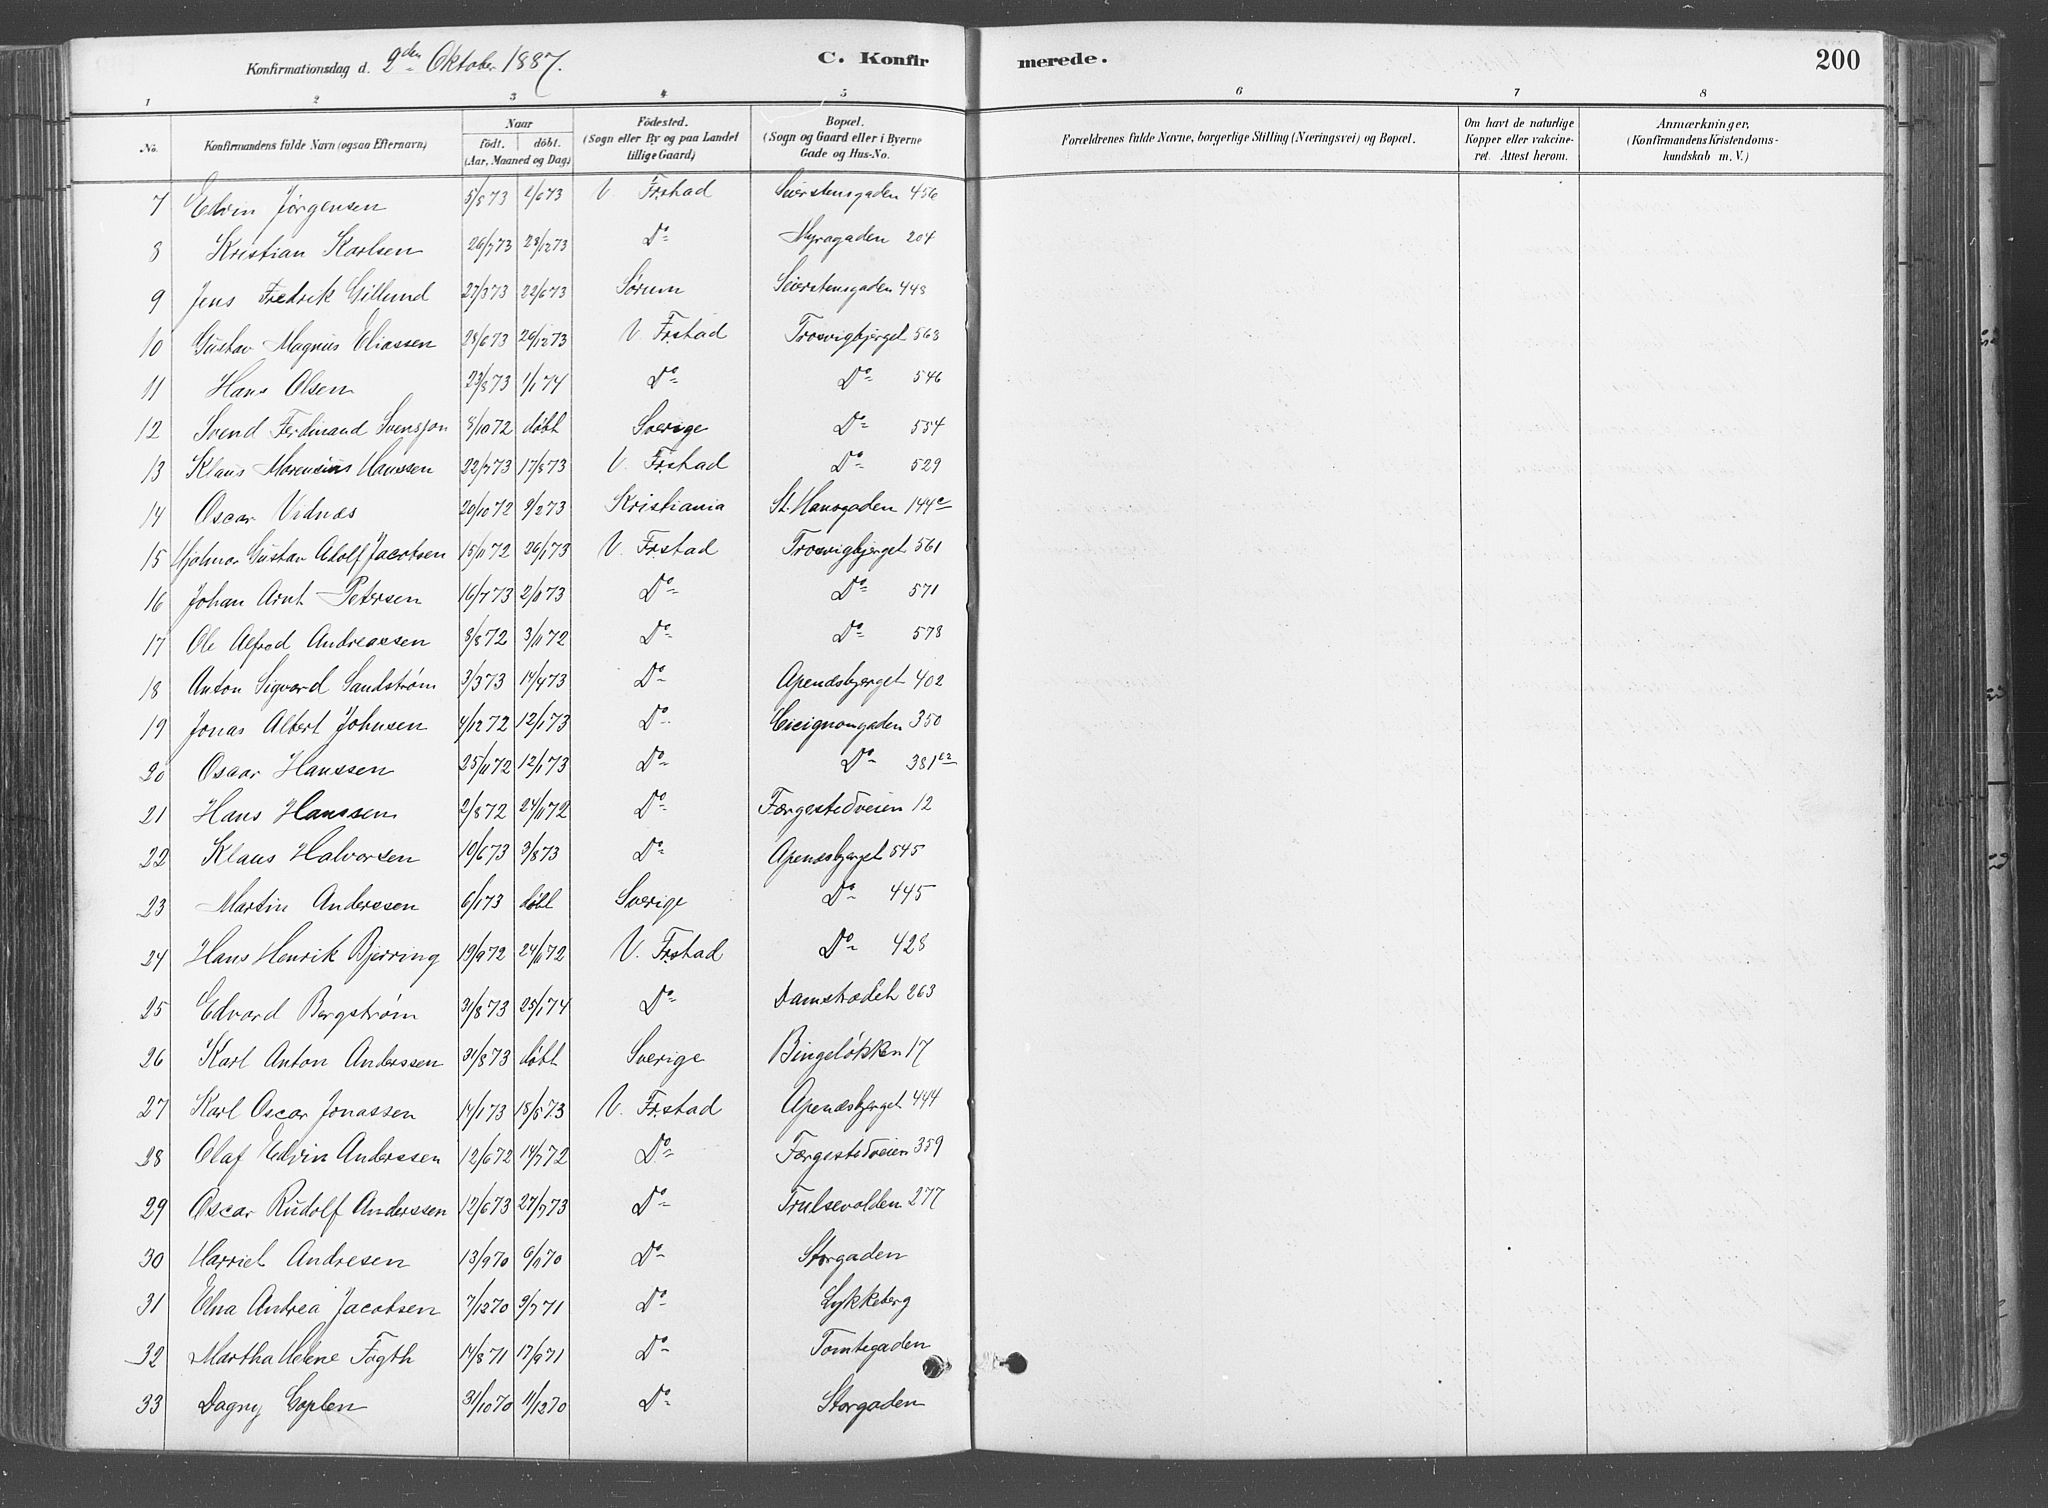 Konfirmationsdag d. 2den Oktober 1887. C. Konfirmerede. 200
1 2 3 4 5 6 7 8
No. Konfirmandens fulde Navn (ogsaa Efternavn) Naar födt. döbt. (Aar, Maaned og Dag) Födested. (Sogn eller By og paa Landet tillige Gaard) Bopæl. (Sogn og Gaard eller i Byerne Gade og Hus-No. Forældrenes fulde Navne, borgerlige Stilling (Næringsvei) og Bopæl. Om havt de naturlige Kopper eller vakcineret. Attest herom. Anmærkninger. (Konfirmandens Kristendomskundskab m. V.)
7 Edvin Jørgensen 5/873 2/673 V. Frstad Seierstensgaden 456
8 Kristian Karlsen 26/773 28/1273 Do Myragaden 204
9 Jens Fredrik Gillund 27/373 22/673 Sørum Seierstensgaden 448
10 Gustav Magnus Eliassen 28/673 26/1273 V. Frstad Trosvigbjerget 563
11 Hans Olsen 23/873 1/174 Do Do 546
12 Svend Ferdinand Svensson 8/1072 döbt Sverige Do 554
13 Klaus Marensius Hanssen 22/773 17/873 V. Frstad Do 529
14 Oscar Vidnæs 20/1072 9/273 Kristiania St. Hansgaden 144c
15 Hjalmar Gustav Adolf Jacobsen 15/1172 26/173 V. Frstad Trosvigbjerget 561
16 Johan Arnt Petersen 16/773 2/1173 Do Do 571
17 Ole Alfred Andreassen 8/872 3/1172 Do Do 578
18 Anton Sigvard Sandstrøm 3/373 14/473 Do Apenæsbjerget 402
19 Jonas Albert Johnsen 4/1272 12/173 Do Cicignongaden 350
20 Oscar Hanssen 25/1172 12/173 Do Do 381
21 Hans Hanssen 2/872 24/1172 Do Færgestedveien 12
22 Klaus Halvorsen 19/673 3/873 Do Apenæsbjerget 545
23 Martin Anderssen 6/173 döbt Sverige Do 445
24 Hans Henrik Bjerring 19/972 24/1172 V. Frstad Do 428
25 Edvard Bergstrøm 31/873 25/174 Do Damstrædet 263
26 Karl Anton Anderssen 31/873 döbt Sverige Bingeløkken 17
27 Karl Oscar Jonassen 14/173 18/573 V. Frstad Apenæsbjerget 444
28 Olaf Edvin Anderssen 12/672 14/772 Do Færgestedveien 359
29 Oscar Rudolf Anderssen 12/673 27/773 Do Trulsevolden 277
30 Harriet Andresen 13/970 6/1170 Do Storgaden
31 Elna Andrea Jacobsen 7/1270 9/771 Do Lykkeberg
32 Martha Helene Fogth 14/871 17/971 Do Tomtegaden
33 Dagny Coplen 31/1070 11/1270 Do Storgaden